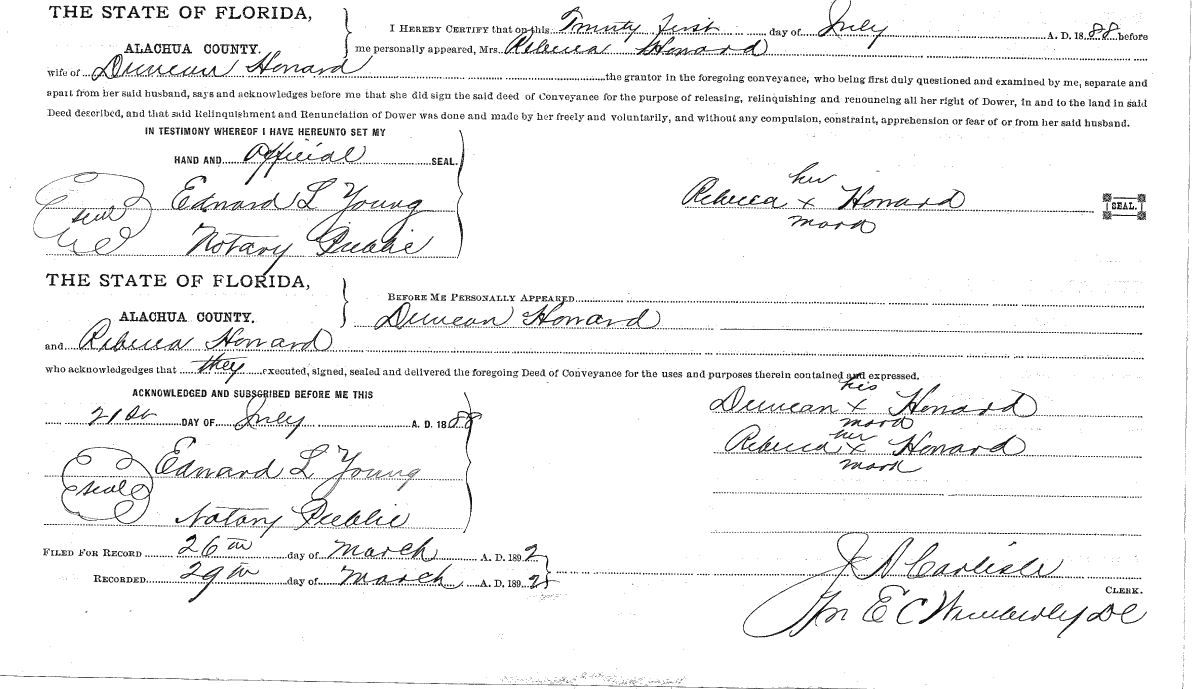 THE STATE OF FLORIDA,
I HEREBY CERTIFY that on this Twenty first day of July A. D. 1888 before
ALACHUA COUNTY. me personally appeared, Mrs. Rebecca Howard
wife of Duncan Howard the grantor in the foregoing conveyance, who being first duly questioned and examined by me, separate and
apart from her said husband, says and acknowledges before me that she did sign the said deed of Conveyance for the purpose of releasing, relinquishing and renouncing all her right of Dower, in and to the land in said
Deed described, and that said Relinquishment and Renunciation of Dower was done and made by her freely and voluntarily, and without any compulsion, constraint, apprehension or fear of or from her said husband.
IN TESTIMONY WHEREOF I HAVE HEREUNTO SET MY
HAND AND Official SEAL.
her
Seal Edward L Young Rebecca x Howard SEAL.
mark
Notary Public
THE STATE OF FLORIDA,
BEFORE ME PERSONALLY APPEARED
ALACHUA COUNTY. Duncan Howard
and Rebecca Howard
who acknowledgedges that they executed, signed, sealed and delivered the foregoing Deed of Conveyance for the uses and purposes therein contained and expressed.
ACKNOWLEDGED AND SUBSCRIBED BEFORE ME THIS his
21st DAY OF July A. D. 1888 Duncan x Howard
mark
her
Edward L Young Rebecca x Howard
Seal mark
Notary Public
FILED FOR RECORD 26th day of March A. D. 1892
RECORDED 29th day of March A. D. 1892 J A Carlisle
CLERK.
E C Wimberly DC